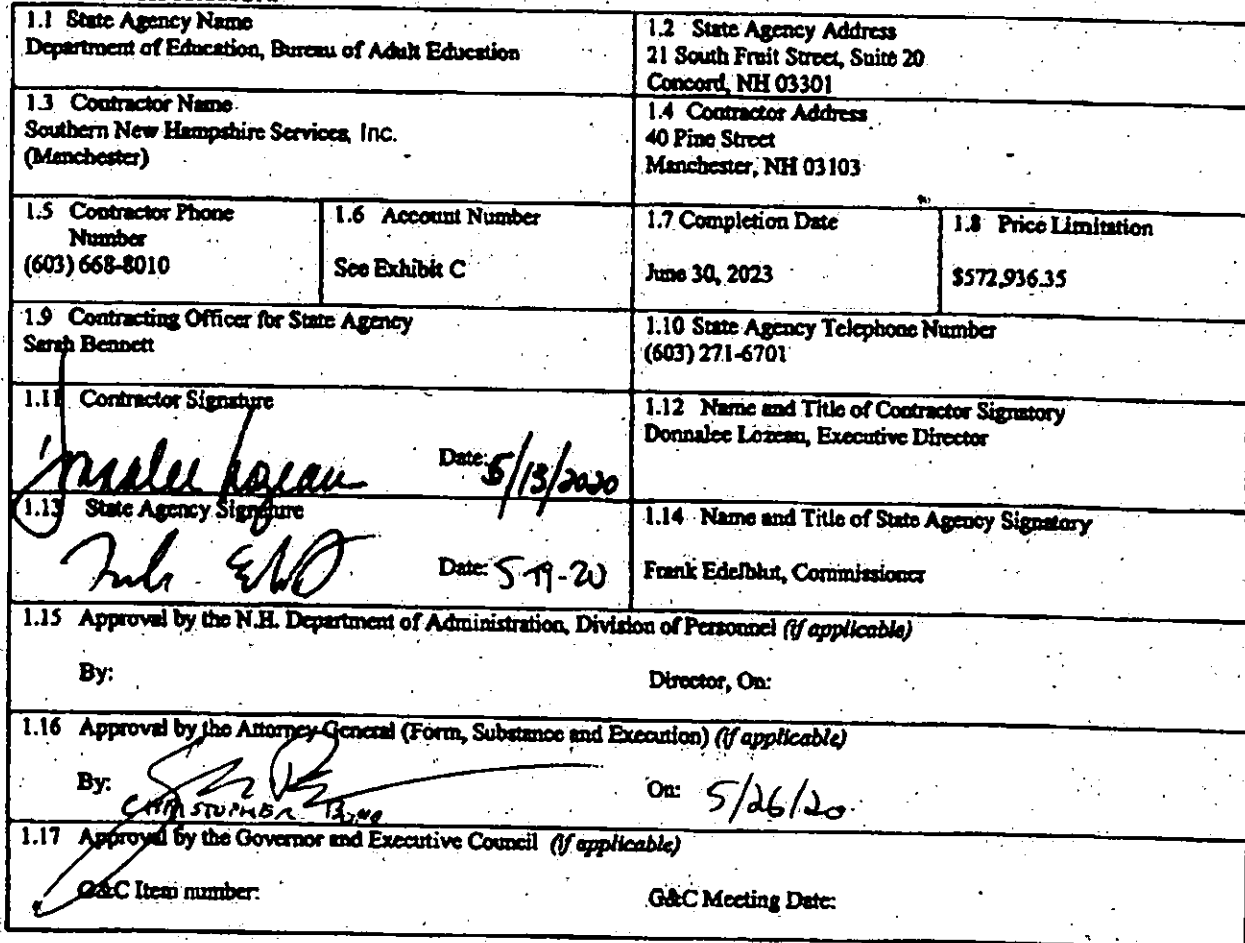 1.1 State Agency Name
Department of Education, Bureau of Adult Education
1.2 State Agency Address
21 South Fruit Street, Suite 20
Concord, NH 03301
1.3 Contractor Name
Southern New Hampshire Services, Inc.
(Manchester)
1.4 Contractor Address
40 Pine Street
Manchester, NH 03103
1.5 Contractor Phone
Number
(603) 668-8010
1.6 Account Number
See Exhibit C
1.7 Completion Date
June 30, 2023
1.8 Price Limitation
$572,936.35
1.9 Contracting Officer for State Agency
Sarah Bennett
1.10 State Agency Telephone Number
(603) 271-6701
1.11 Contractor Signature
Donnalee Lozeau
Date: 5/13/2020
1.12 Name and Title of Contractor Signatory
Donnalee Lozeau, Executive Director
1.13 State Agency Signature
Date: 5-19-20
1.14 Name and Title of State Agency Signatory
Frank Edelblut, Commissioner
1.15 Approval by the N.H. Department of Administration, Division of Personnel (if applicable)
By:
Director, On:
1.16 Approval by the Attorney General (Form, Substance and Execution) (if applicable)
By:
CHRISTOPHER
On: 5/26/20
1.17 Approval by the Governor and Executive Council (if applicable)
G&C Item number:
G&C Meeting Date: